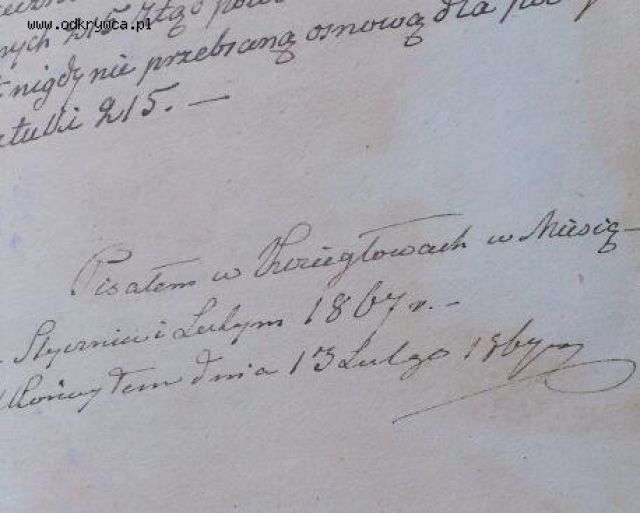 www.odkrywca.pl
nych 215. Ztąd
nigdy nie przebraną osnową dla
215. —
Pisałem w Koziegłowach w Miesią-
Styczniu i Lutym 1867 r. —
Ukończyłem dnia 13 Lutego 1867